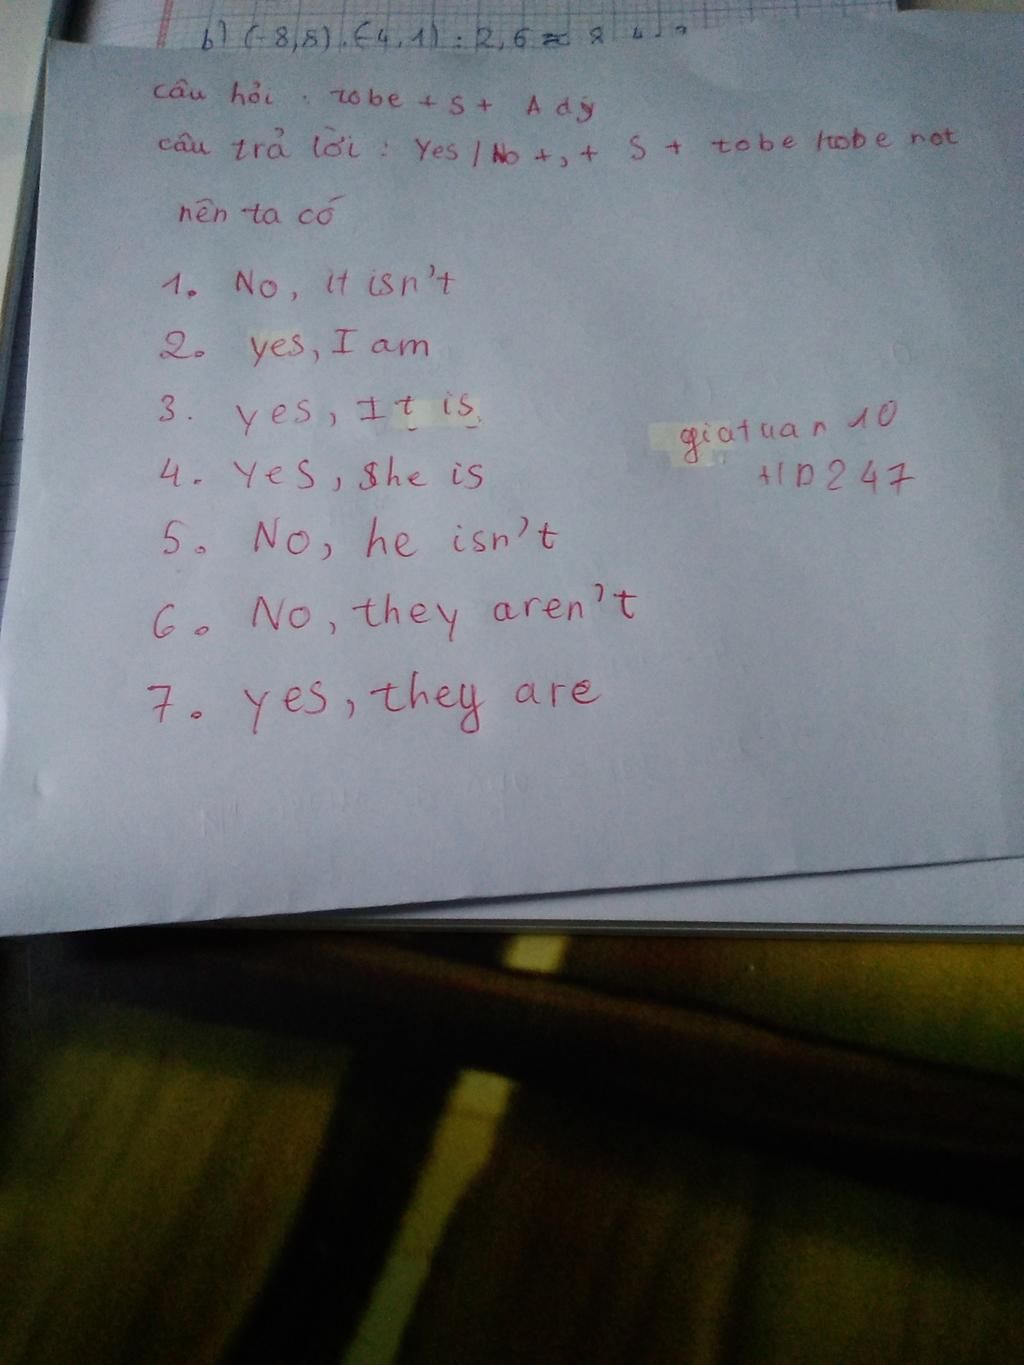 b) (-8,8).(-4,1) : 2,6 ≈
câu hỏi : tobe + S + Ady
câu trả lời : Yes / No + , + S + tobe / tobe not
nên ta có
1. No, it isn't
2. yes, I am
3. yes, It is
giatuan 10
4. Yes, she is
HD247
5. No, he isn't
6. No, they aren't
7. yes, they are